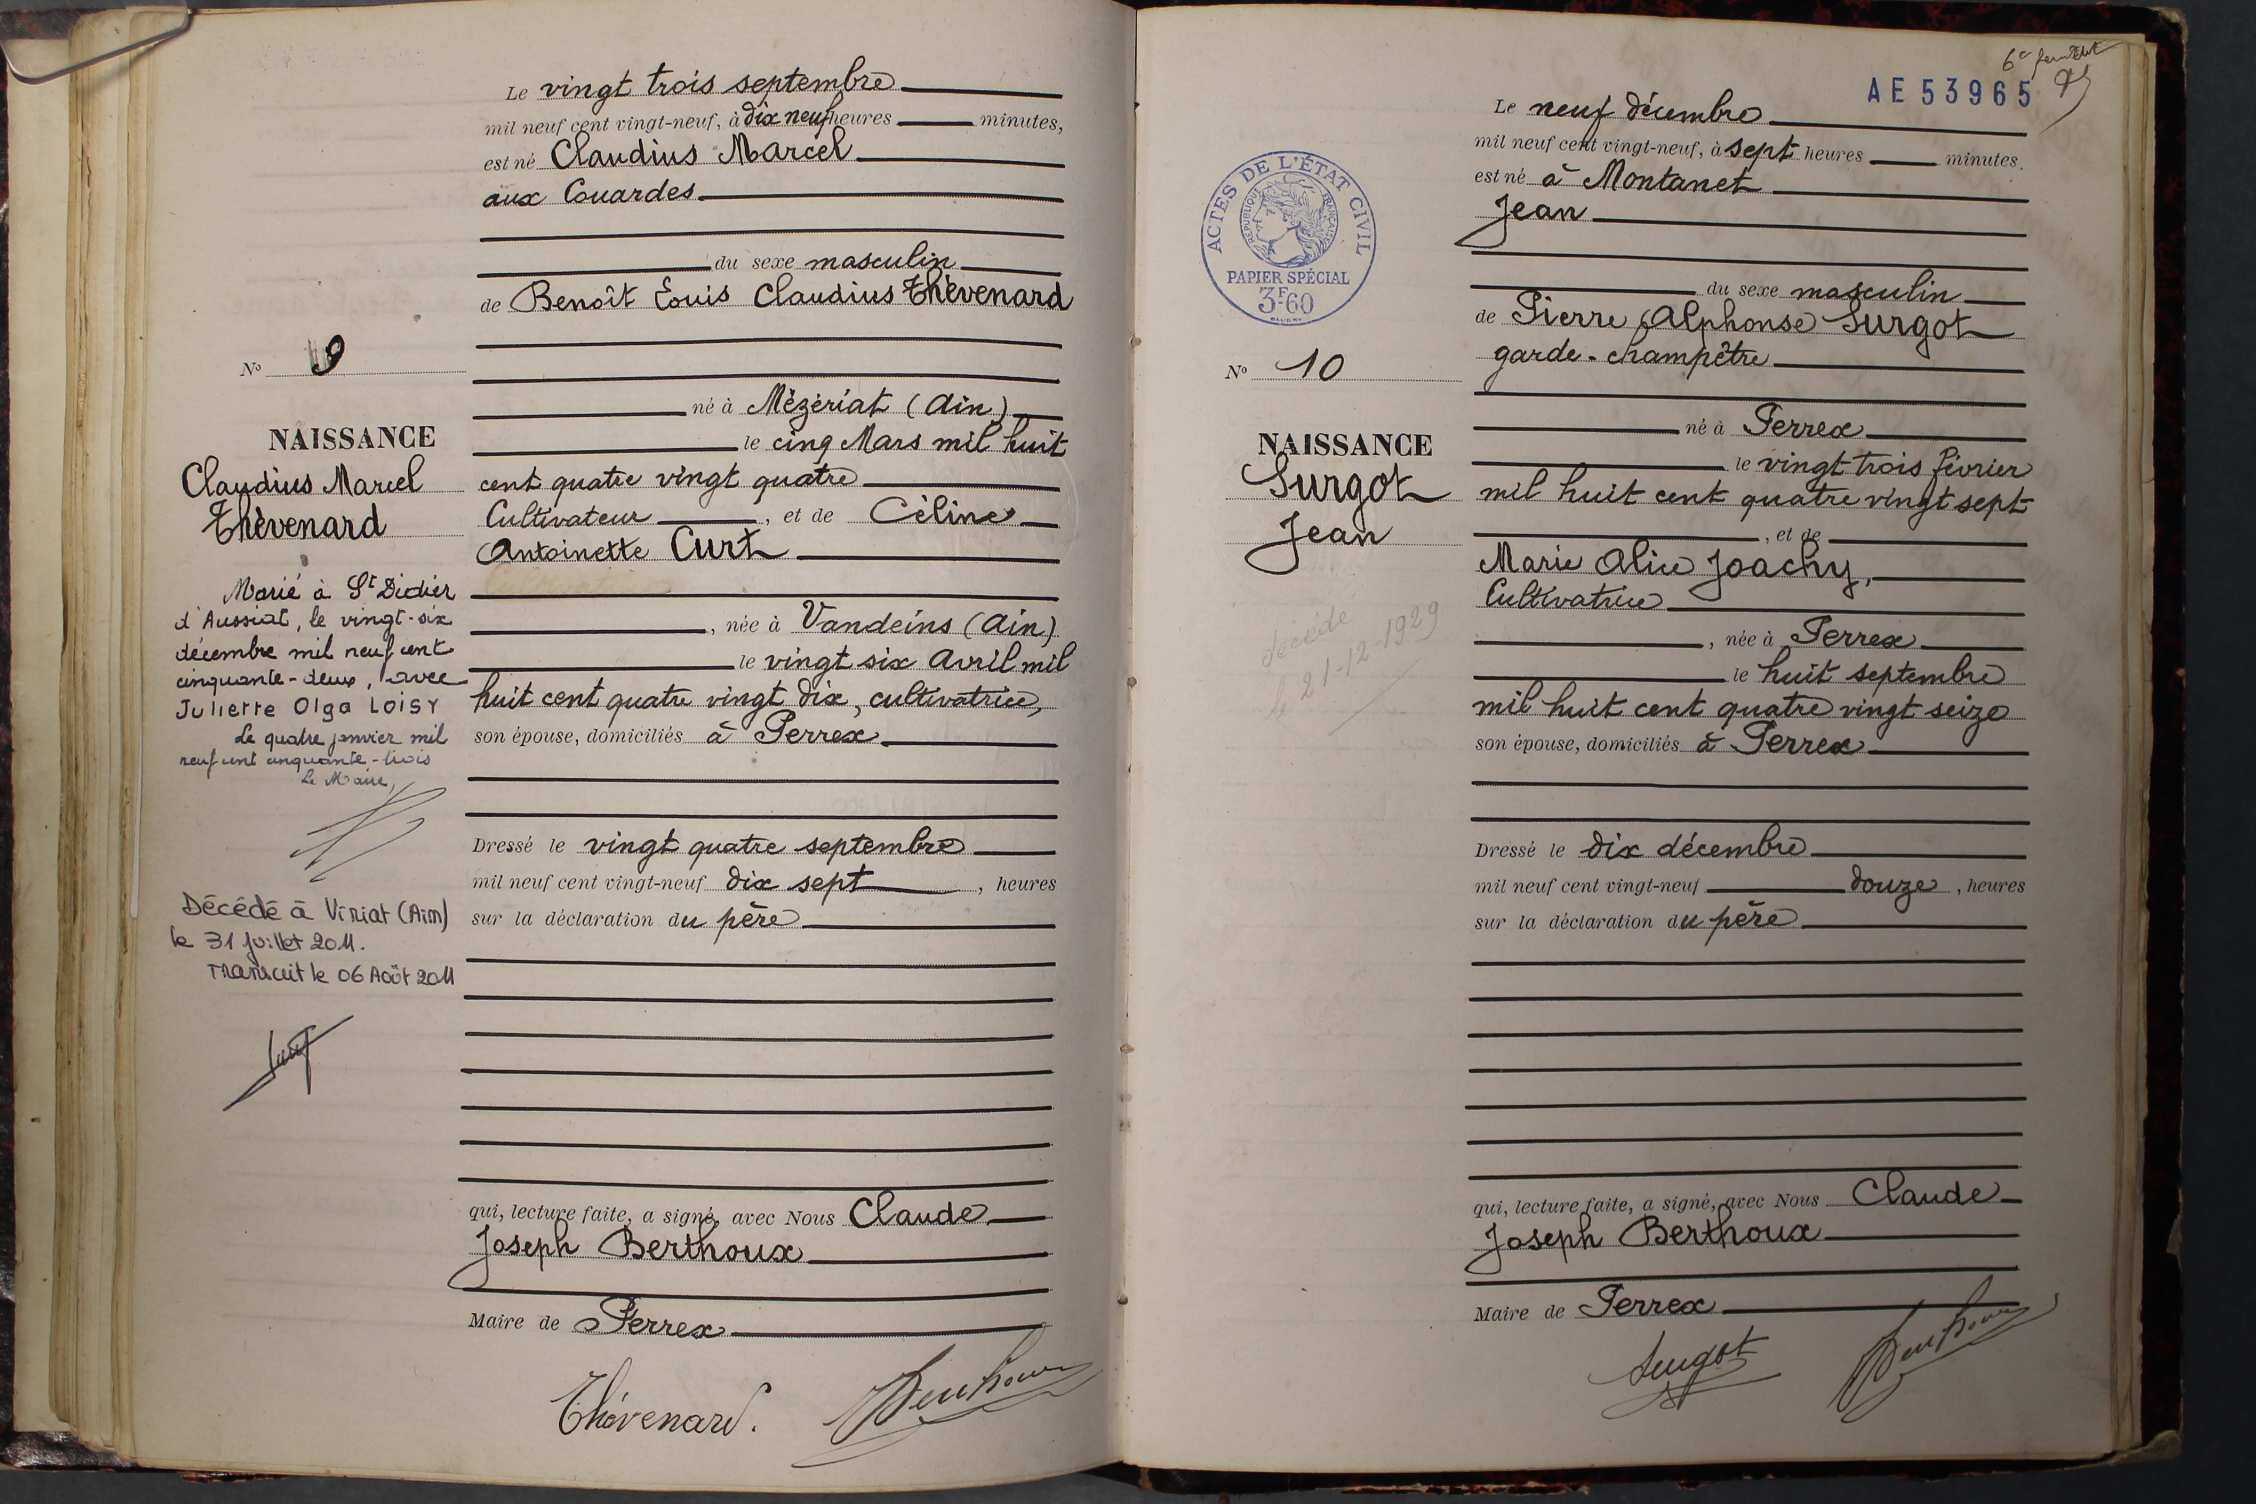 Le vingt trois septembre
mil neuf cent vingt-neuf, à dix neuf heures minutes,
est né Claudius Marcel
aux Couardes
du sexe masculin
de Benoît Louis Claudius Thévenard
né à Mézériat (Ain)
le cinq Mars mil huit
cent quatre vingt quatre
Cultivateur, et de Céline
Antoinette Curt
, née à Vandeins (Ain)
le vingt six Avril mil
huit cent quatre vingt dix, cultivatrice,
son épouse, domiciliés à Perrex
Dressé le vingt quatre septembre
mil neuf cent vingt-neuf dix sept, heures
sur la déclaration du père
qui, lecture faite, a signé, avec Nous Claude
Joseph Berthoux
Maire de Perrex
Thévenard.
Berthoux
No 9
NAISSANCE
Claudius Marcel
Thévenard
Marié à St Didier
d'Aussiat, le vingt-six
décembre mil neuf cent
cinquante-deux, avec
Juliette Olga LOISY
Le quatre janvier mil
neuf cent cinquante-trois
Le Maire,
Décédé à Viriat (Ain)
le 31 juillet 2011.
Transcrit le 06 Août 2011
6e feuillet
AE 53965
Le neuf décembre
mil neuf cent vingt-neuf, à sept heures minutes.
est né à Montanet
Jean
du sexe masculin
de Pierre Alphonse Surgot
garde-champêtre
né à Perrex
le vingt trois février
mil huit cent quatre vingt sept
, et de
Marie Alice Joachy,
Cultivatrice
, née à Perrex
le huit septembre
mil huit cent quatre vingt seize
son épouse, domiciliés à Perrex
Dressé le dix décembre
mil neuf cent vingt-neuf douze, heures
sur la déclaration du père
qui, lecture faite, a signé, avec Nous Claude
Joseph Berthoux
Maire de Perrex
Surgot
Berthoux
ACTES DE L'ÉTAT CIVIL
RÉPUBLIQUE FRANÇAISE
PAPIER SPÉCIAL
3F-60
No 10
NAISSANCE
Surgot
Jean
décédé
le 21-12-1929